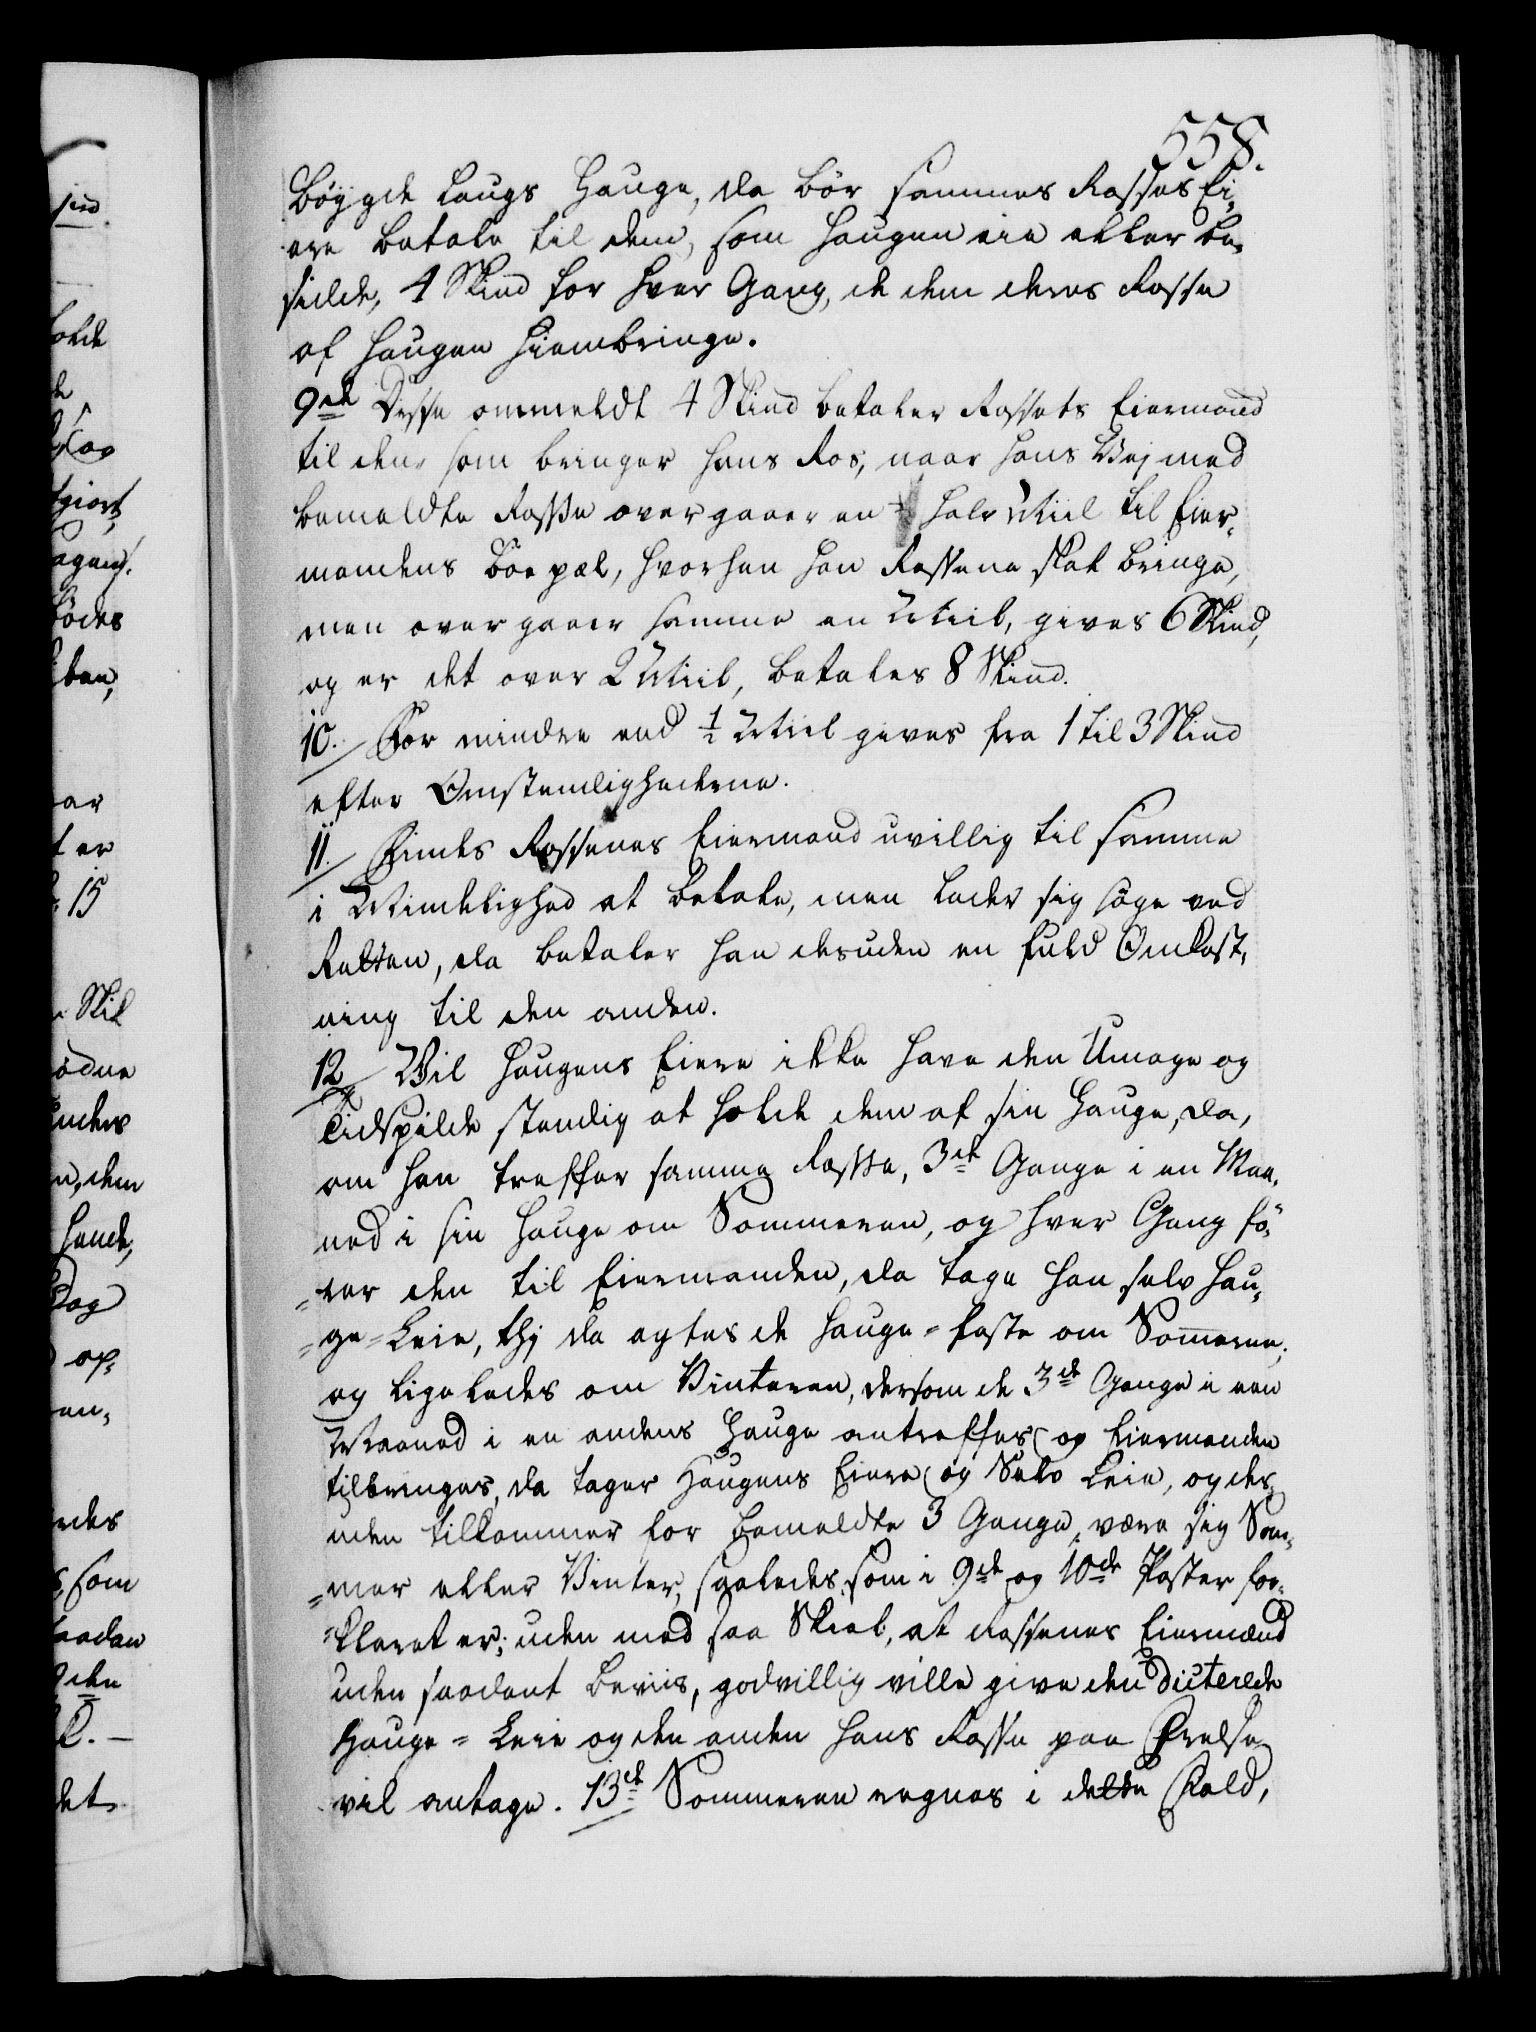 558.
Böÿgde Laugs Hauge, da bör sammes Rosses Ei-
ere betale til dem, som Haugen eie eller be-
sidde, 4 Skind for hver Gang, de dem deres Rosse
af Haugen hiembringe.
9de Disse ommeldt 4 Skind betaler Rossets Eiermand
til den, som bringer hans Ros, naar hans Vej med
bemeldte Rosse overgaaer en halv Miil til Eier-
mandens Boepæl, hvorhen han Rossene skal bringe,
men overgaaer samme en Miil, gives 6 Skind,
og er det over 2 Miil, betales 8 Skind.
10. For mindre end ½ Miil gives fra 1 til 3 Skind
efter Omstændighederne.
11. Findes Rossenes Eiermand uvillig til samme
i Mindelighed at betale, men lader sig söge ved
Retten, da betaler han desuden en fuld Omkost-
ning til den anden.
12 Vil Haugens Eiere ikke have den Umage og
Tidspilde stendig at holde dem af sin Hauge, da,
om han treffer samme Rosse, 3de Gange i en Maa-
ned i sin Hauge om Sommeren, og hver Gang fö-
=rer den til Eiermanden, da tage han selv Hau-
=ge=Leie, thj da agtes de Hauge=faste om Som̅eren;
og ligeledes om Vinteren, dersom de 3de Gange i een
Maaned i en andens Hauge antreffes og Eiermanden
tilbringes, da tager Haugens Eiere og Selv Leie, og des-
uden tilkommer for bemeldte 3 Gange, være sig Som-
=mer eller Vinter, saaledes som i 9de og 10de Poster for-
=klaret er; uden med saa Skiel, at Rossenes Eiermand
uden saadant Beviis, godvillig ville give den Dicterede
Hauge=Leie og den anden hans Rosse paa
vil antage. 13de Sommeren regnes i dette Fald,